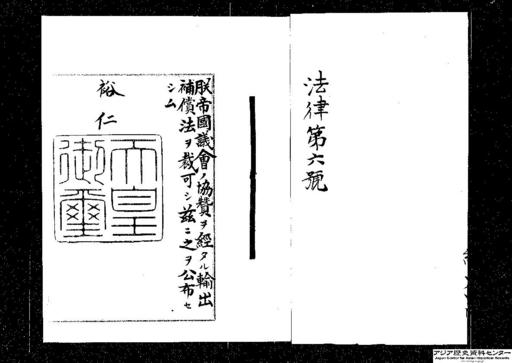 法律第六號
朕帝國議會ノ協賛ヲ經タル輸出
補償法ヲ裁可シ茲ニ之ヲ公布セ
シム
裕仁
天皇
御璽
アジア歴史資料センター
Japan Center for Asian Historical Records